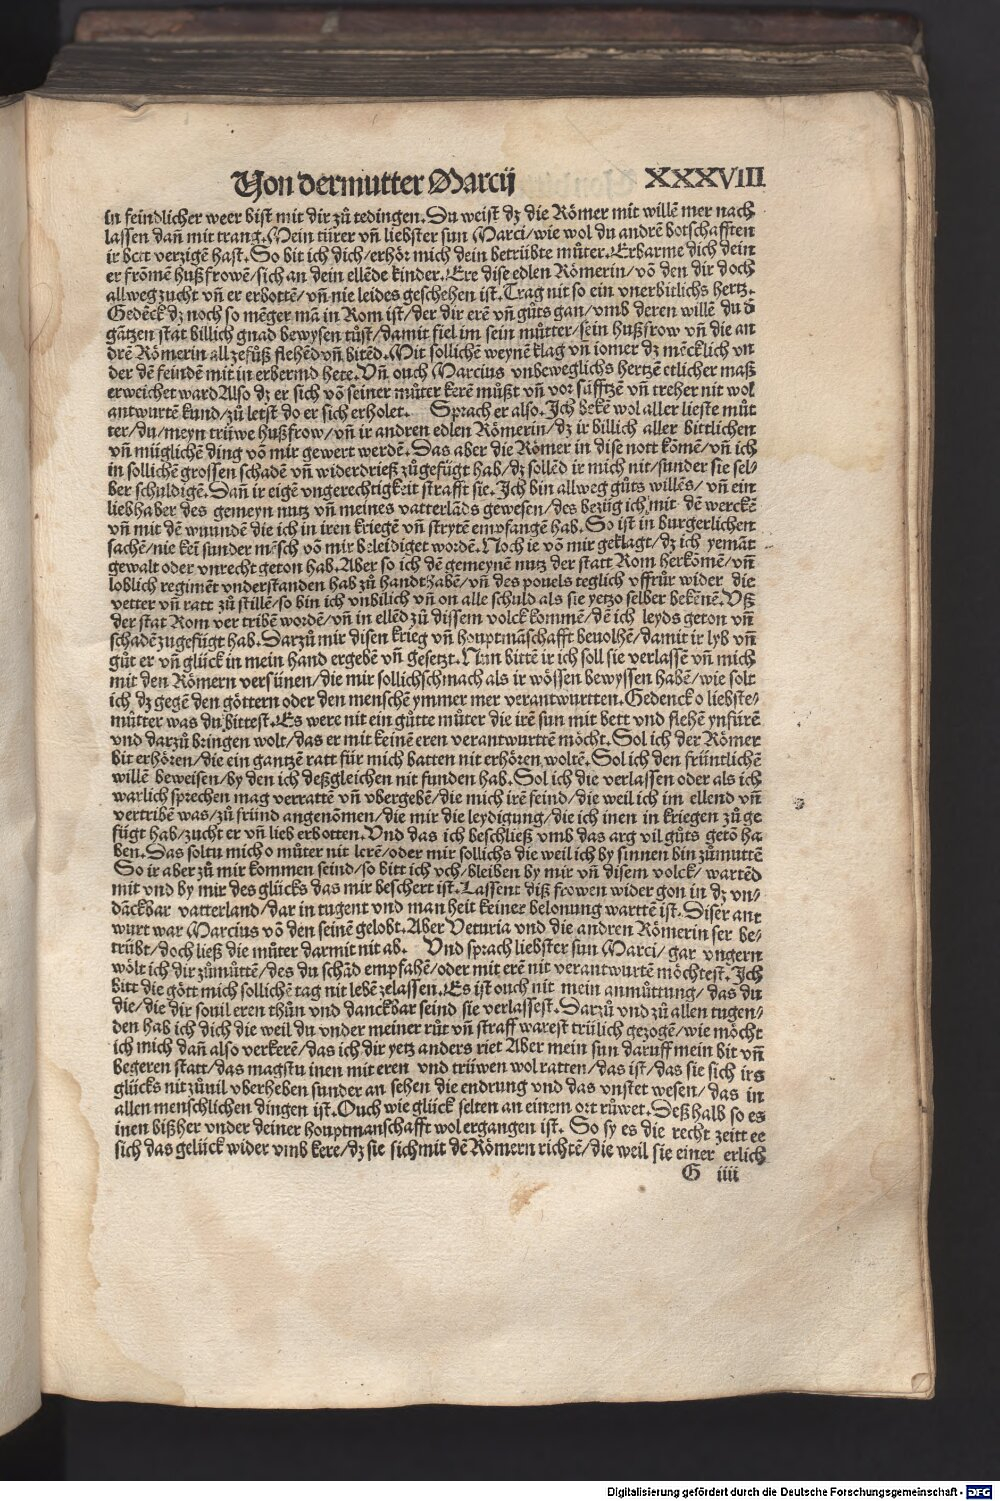 Von dermutter Marcij XXXVIII
in feindlicher weer bist mit dir zů tedingen. Du weist dz die Römer mit willē mer nach
lassen dañ mit trang. Mein türer vñ liebster sun Marci/wie wol du andrē botschafften
ir bett verzigē hast. So bit ich dich/erhör mich dein betrübte můter. Erbarme dich dein
er frōmē hußfrowē/sich an dein ellēde kinder. Ere dise edlen Römerin/vō den dir doch
allweg zucht vñ er erbottē/vñ nie leides geschehen ist. Trag nit so ein vnerbitlichs hertz.
Gedēck dz noch so mēger mā in Rom ist/der dir erē vñ gůts gan/vmb deren willē du d̄
gātzen stat billich gnad bewysen tůst/damit fiel im sein můtter/sein hußfrow vñ die an
drē Römerin all zefůß flehēd vñ bitēd. Mit sollichē weynē klag vñ iomer dz mēcklich vn
der dē feindē mit in erbermd hete. Vñ ouch Marcius vnbeweglichs hertzē etlicher maß
erweichet ward Also dz er sich vō seiner můter kerē můßt vñ vor süfftzē vñ treher nit wol
antwurtē kund/zů letst do er sich erholet. Sprach er also. Ich bekē wol aller lieste můt
ter/du/meyn trüwe hußfrow/vñ ir andren edlen Römerin/dz ir billich aller bittlichen
vñ müglichē ding vō mir gewert werdē. Das aber die Römer in dise nott kōmē/vñ ich
in sollichē grossen schadē vñ widerdrieß zůgefügt hab/dz sollēd ir mich nit/sunder sie sel-
ber schuldigē. Dañ ir eigē vngerechtigkeit strafft sie. Ich bin allweg gůts willēs/vñ ein
liebhaber des gemeyn nutz vñ meines vatterlāds gewesen/des bezüg ich mit dē werckē
vñ mit dē wnundē die ich in iren kriegē vñ strytē empfangē hab. So ist in burgerlichen
sachē/nie kei sunder mēsch vō mir beleidiget wordē. Noch ie vō mir geklagt/dz ich yemāt
gewalt oder vnrecht geton hab. Aber so ich dē gemeynē nutz der statt Rom herkōmē/vñ
loblich regimēt vnderstanden hab zů handthabē/vñ des pouels teglich vffrür wider die
vetter vñ ratt zů stillē/so bin ich vnbilich vñ on alle schuld als sie yetzo selber bekēnē. Vß
der stat Rom ver tribē wordē/vñ in ellēd zů dissem volck kommē/dē ich leyds geton vñ
schadē zugefügt hab. Darzů mir disen krieg vñ houptmāschafft beuolhē/damit ir lyb vñ
gůt er vñ glück in mein hand ergebē vñ gesetzt. Nun bittē ir ich soll sie verlassē vñ mich
mit den Römern versünen/die mir sollich schmach als ir wössen bewyssen habē/wie solt
ich dz gegē den göttern oder den menschē ymmer mer verantwurtten. Gedenck o liebste-
můtter was du bittest. Es were nit ein gůtte můter die irē sun mit bett vnd flehē ynfürē
vnd darzů bringen wolt/das er mit keinē eren verantwurttē möcht. Sol ich der Römer
bit erhören/die ein gantzē ratt für mich batten nit erhören woltē. Sol ich den früntlichē
willē beweisen/by den ich deßgleichen nit funden hab. Sol ich die verlassen oder als ich
warlich sprechen mag verrattē vñ vbergebē/die mich irē feind/die weil ich im ellend vñ
vertribē was/zů fründ angenōmen/die mir die leydigung/die ich inen in kriegen zůge
fügt hab/zucht er vñ lieb erbotten. Vnd das ich beschließ vmb das arg vil gůts getō ha
ben. Das soltu mich o můter nit lerē/oder mir sollichs die weil ich by sinnen bin zůmuttē
So ir aber zů mir kommen seind/so bitt ich vch/bleiben by mir vñ disem volck/wartēd
mit vnd by mir des glücks das mir beschert ist. Lassent diß frowen wider gon in dz vn-
dāckbar vatterland/dar in tugent vnd man heit keiner belonung warttē ist. Diser ant
wurt war Marcius vō den seinē gelobt. Aber Veturia vnd die andren Römerin ser be-
trübt/doch ließ die můter darmit nit ab. Vnd sprach liebster sun Marci/gar vngern
wölt ich dir zůmüttē/des du schād empfahē/oder mit erē nit verantwurtē möchtest. Ich
bitt die gött mich sollichē tag nit lebē zelassen. Es ist ouch nit mein anmůttung/das du
die/die dir souil eren thůn vnd danckbar seind sie verlassest. Darzů vnd zů allen tugen-
den hab ich dich die weil du vnder meiner růt vñ straff warest trülich gezogē/wie möcht
ich mich dañ also verkerē/das ich dir yetz anders riet Aber mein sun daruff mein bit vñ
begeren statt/das magstu inen mit eren vnd trüwen wol ratten/das ist/das sie sich irs
glücks nit zůuil vberheben sunder an sehen die endrung vnd das vnstet wesen/das in
allen menschlichen dingen ist. Ouch wie glück selten an einem ort růwet. Deßhalb so es
inen bißher vnder deiner houptmanschafft wol ergangen ist. So sy es die recht zeitt ee
sich das gelück wider vmb kere/dz sie sich mit dē Römern richtē/die weil sie einer erlich
G iiii
Digitalisierung gefördert durch die Deutsche Forschungsgemeinschaft - DFG